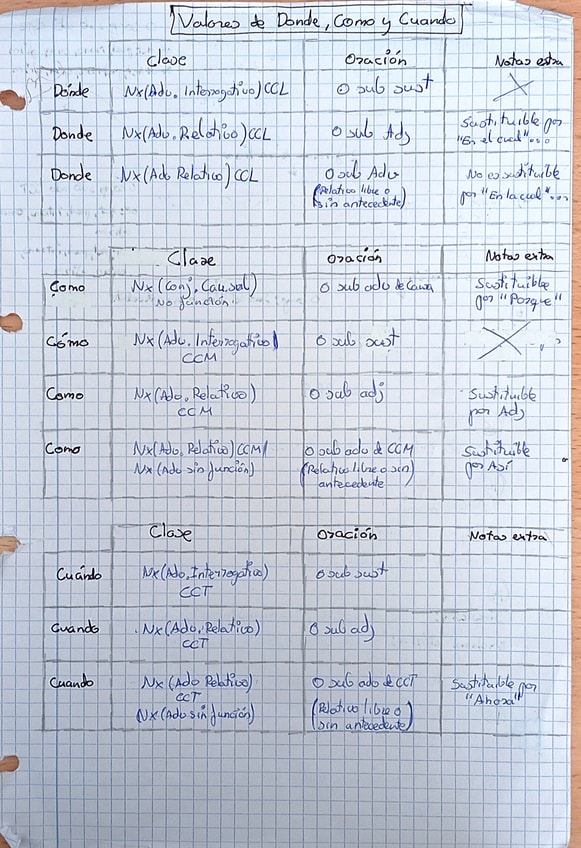 Valores de Donde, Como y Cuando
Clase Oración Notas extra
Dónde Nx (Adv. Interrogativo) CCL O sub sust X
Donde Nx (Adv. Relativo) CCL O sub Adj Sustituible por
"En el cual"...
Donde Nx (Adv Relativo) CCL O sub Adv No es sustituible
(Relativo libre o por "En la cual"...
sin antecedente)
Clase Oración Notas extra
Como Nx (Conj. Causal) O sub adv de Causa Sustituible
No función. por "Porque"
Cómo Nx (Adv. Interrogativo) O sub sust X
CCM
Como Nx (Adv. Relativo) O sub adj Sustituible
CCM por Adj
Como Nx (Adv. Relativo) CCM/ O sub adv de CCM Sustituible
Nx (Adv sin función) (Relativo libre o sin por Así
antecedente)
Clase Oración Notas extra
Cuándo Nx (Adv. Interrogativo) O sub sust
CCT
Cuando Nx (Adv. Relativo) O sub adj
CCT
Cuando Nx (Adv Relativo) O sub adv de CCT Sustituible por
CCT (Relativo libre o "Ahora"
Nx (Adv sin función) sin antecedente)